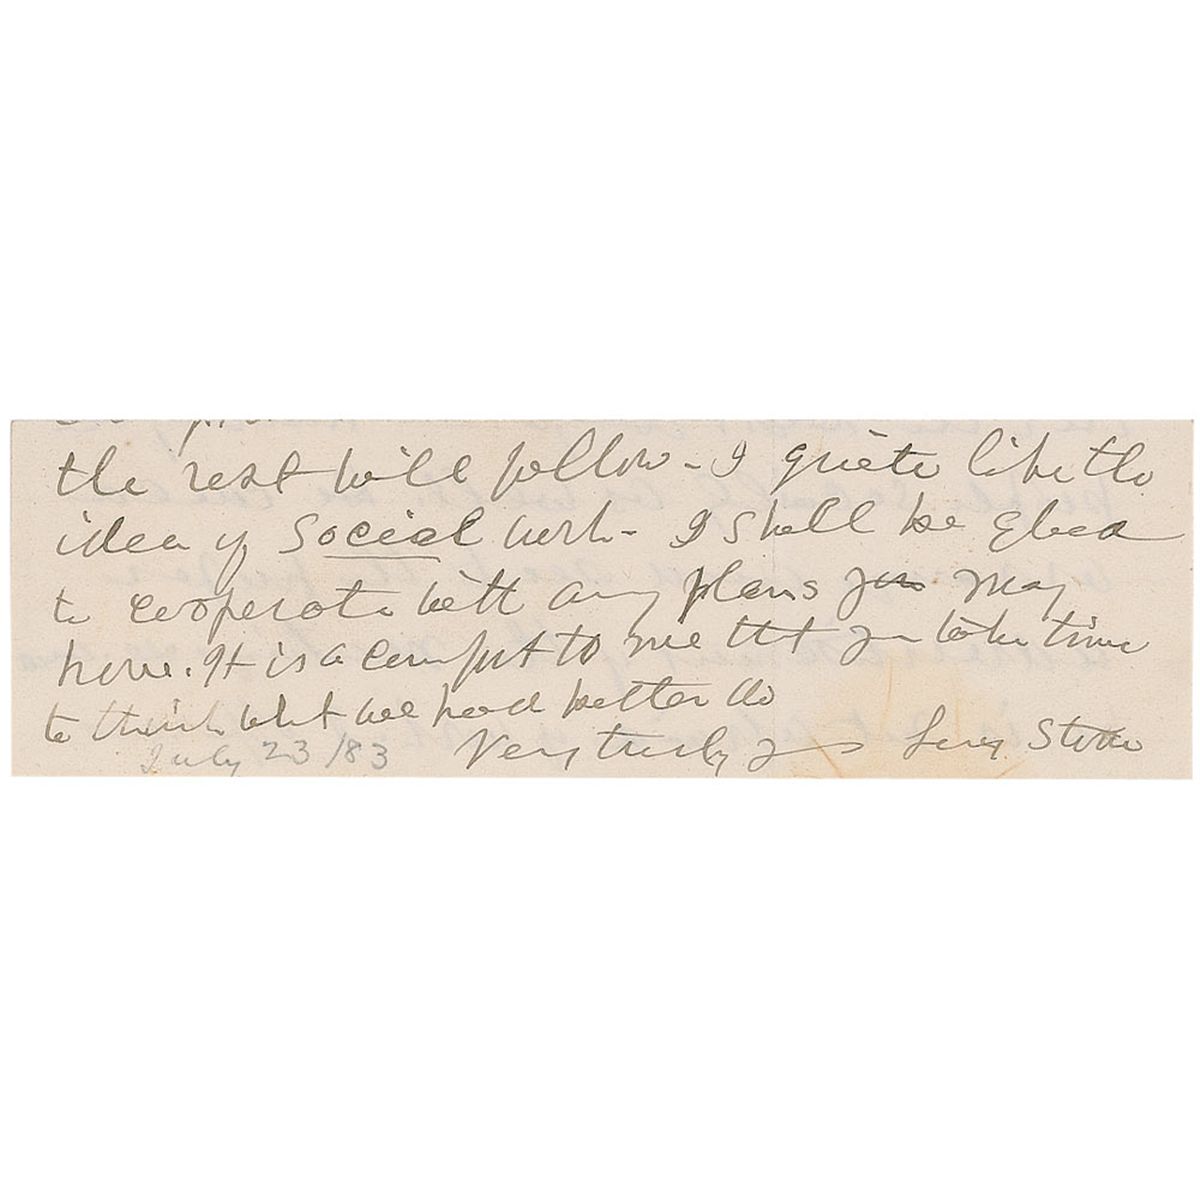 the rest will follow - I quite like the
idea of social work - I shall be glad
to cooperate with any plans you may
have. It is a comfort to me tht you take time
to think what we had better do
Very truly yours Lucy Stone
July 23/83